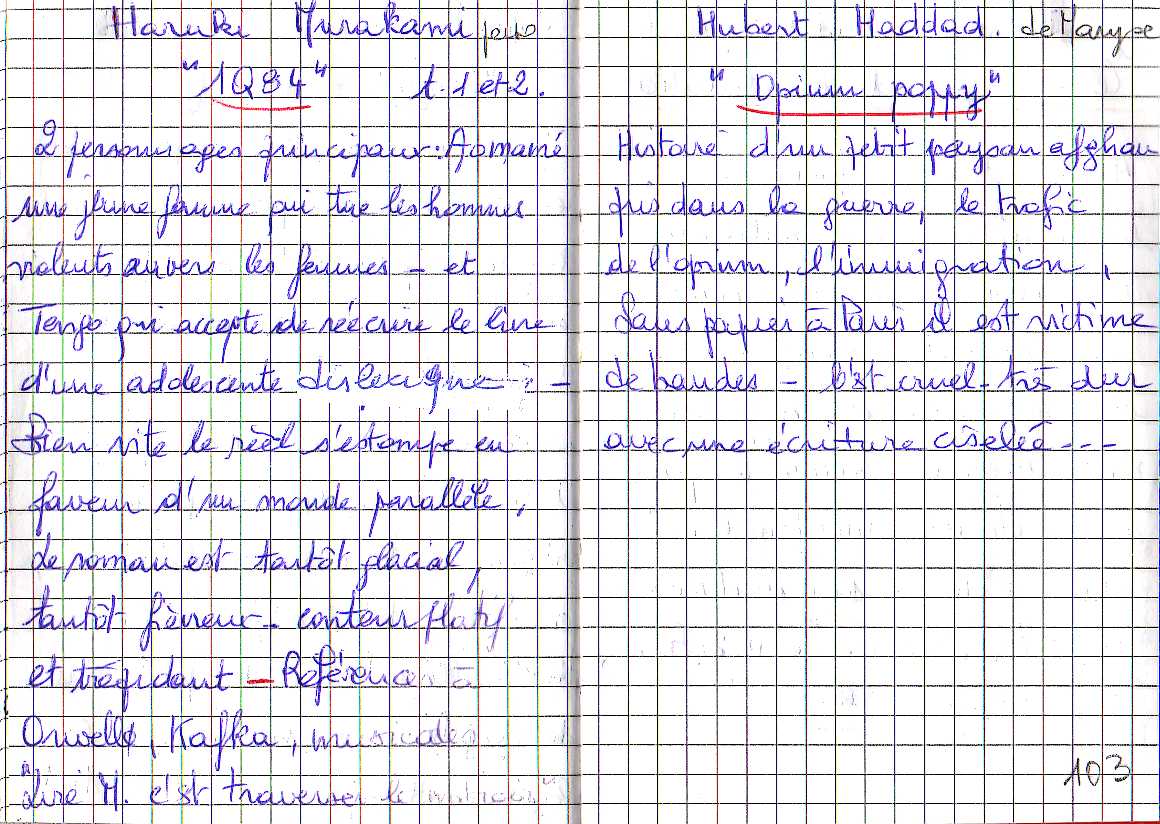 Haruki Murakami perso
"1Q84" t. 1 et 2.
2 personnages principaux : Aomamé
une jeune femme qui tue les hommes
violents envers les femmes - et
Tengo qui accepte de réécrire le livre
d'une addolescente dislexique -
Bien vite le réel s'estompe en
faveur d'un monde parallèle,
Le roman est tantôt glacial,
tantôt fièvreux - conteur
et trépidant - Références à
Orwell, Kafka, musicales
"Lire M. c'est traverser le miroir"
Hubert Haddad. de Maryse
"Opium poppy"
Histoire d'un petit paysan afghan
pris dans la guerre, le trafic
de l'opium, l'immigration,
Sans papier à Paris il est victime
de bandes - C'est cruel - très dur
avec une écriture ciselée ---
103